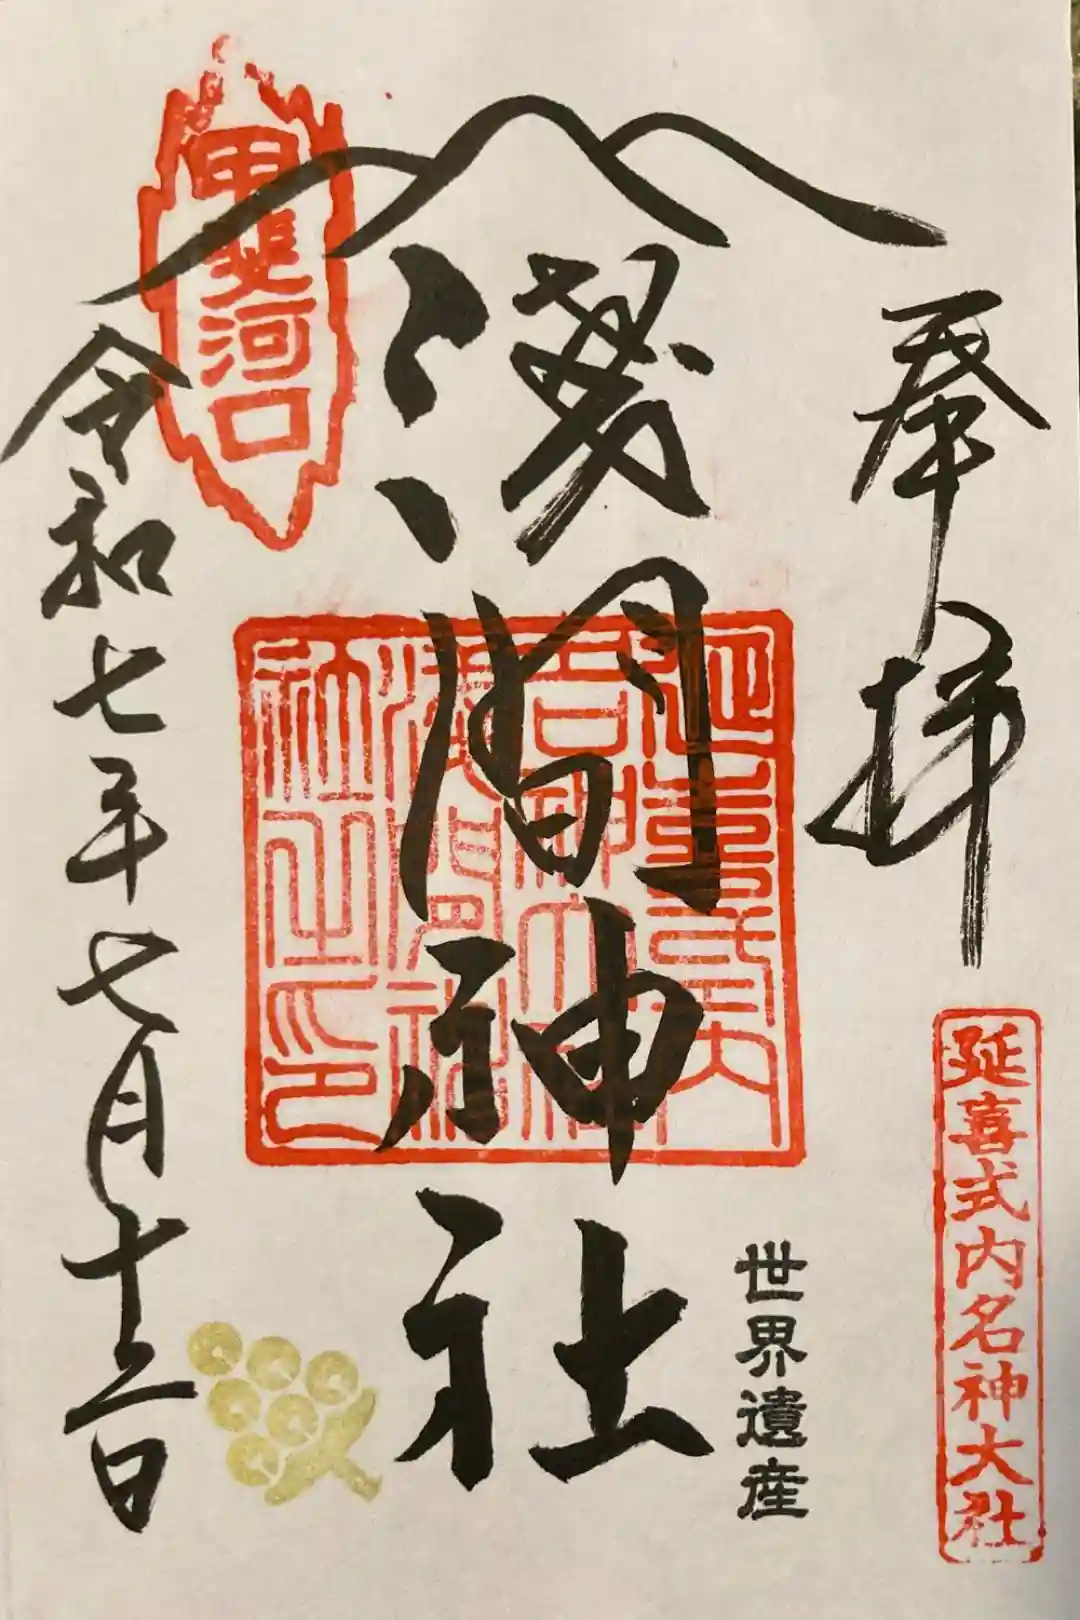 奉拝
延喜式内名神大社
世界遺産
淺間神社
延喜式内
名神大社
淺間神
社之印
甲斐河口
令和七年七月十二日